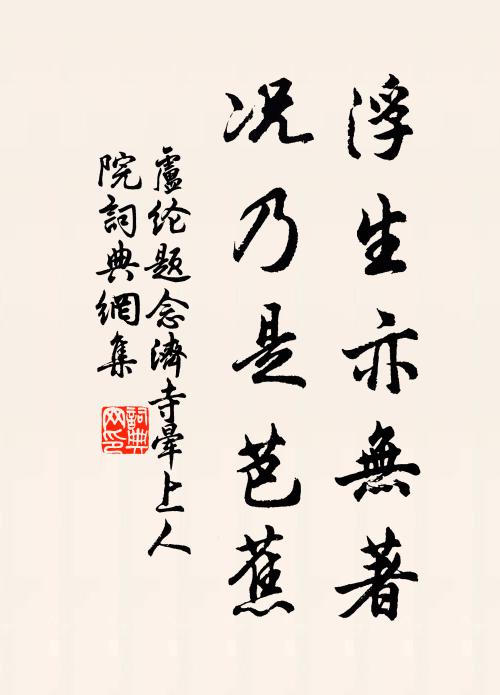 浮生亦無著
况乃是芭蕉
盧纶题念濟寺暈上人
院詞典網集
詞典
网印